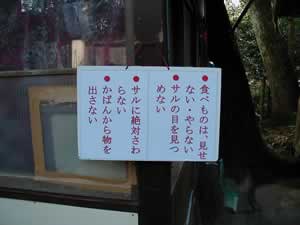 ●食べものは、見せ
ない・やらない
●サルの目を見つ
めない
●サルに絶対さわ
らない
●かばんから物を
出さない